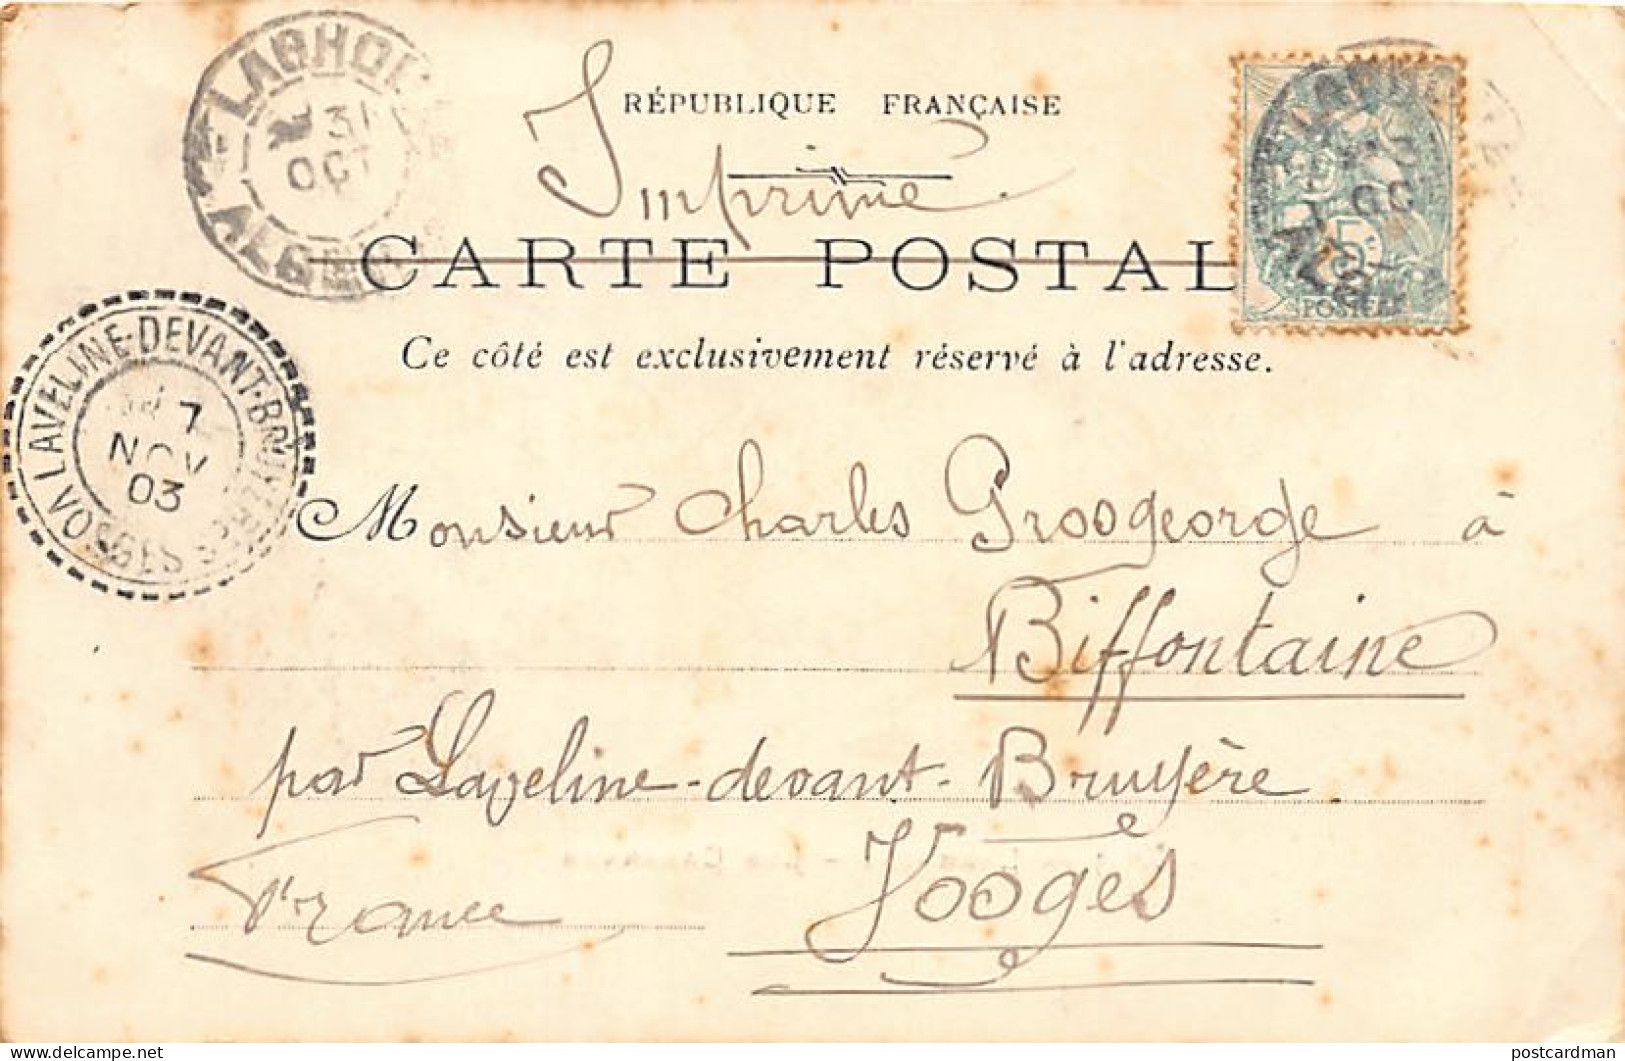 LAGHOU
31
OCT
ALG
RÉPUBLIQUE FRANÇAISE
Imprimé
CARTE POSTAL
Ce côté est exclusivement réservé à l'adresse.
5
POSTES
LAVELINE-DEVANT-BRUYERES
7
NOV
03
VOSGES
Monsieur Charles Grosgeorge à
Biffontaine
par Laveline-devant-Bruyère
Vosges
France
postcardman